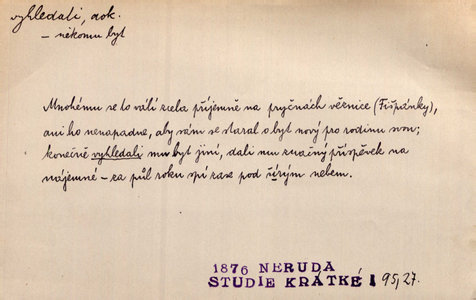 vyhledati, dok.
— někomu byt
Mnohému se to válí zcela příjemně na pryčnách věznice (Fišpanky),
ani ho nenapadne, aby sám se staral o byt nový pro rodinu svou;
konečně vyhledali mu byt jiní, dali mu značný příspěvek na
nájemné – za půl roku spí zase pod šírým nebem.
1876 NERUDA
STUDIE KRÁTKÉ I 95,27.